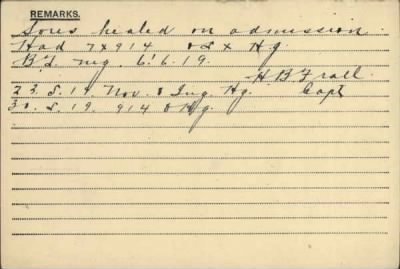 REMARKS.
Sores healed on admission.
Had 7 x 914 x Hg.
neg. 6.6.19.
H B
Capt
23.5.19. Nov. Hg.
30.5.19. 914 Hg.